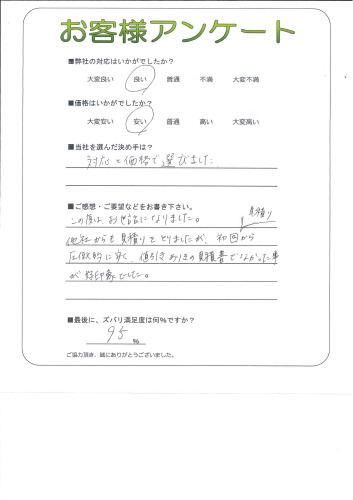 お客様アンケート
■弊社の対応はいかがでしたか?
大変良い 良い 普通 不満 大変不満
■価格はいかがでしたか?
大変安い 安い 普通 高い 大変高い
■当社を選んだ決め手は?
対応と価格で選びました
■ご感想・ご要望などをお書き下さい。
この度は、お世話になりました。
見積り
他社からも見積りをとりましたが、初回から
圧倒的に安く、値引きありきの見積書でなかった事
が好印象でした。
■最後に、ズバリ満足度は何%ですか?
95 %
ご協力頂き、誠にありがとうございました。